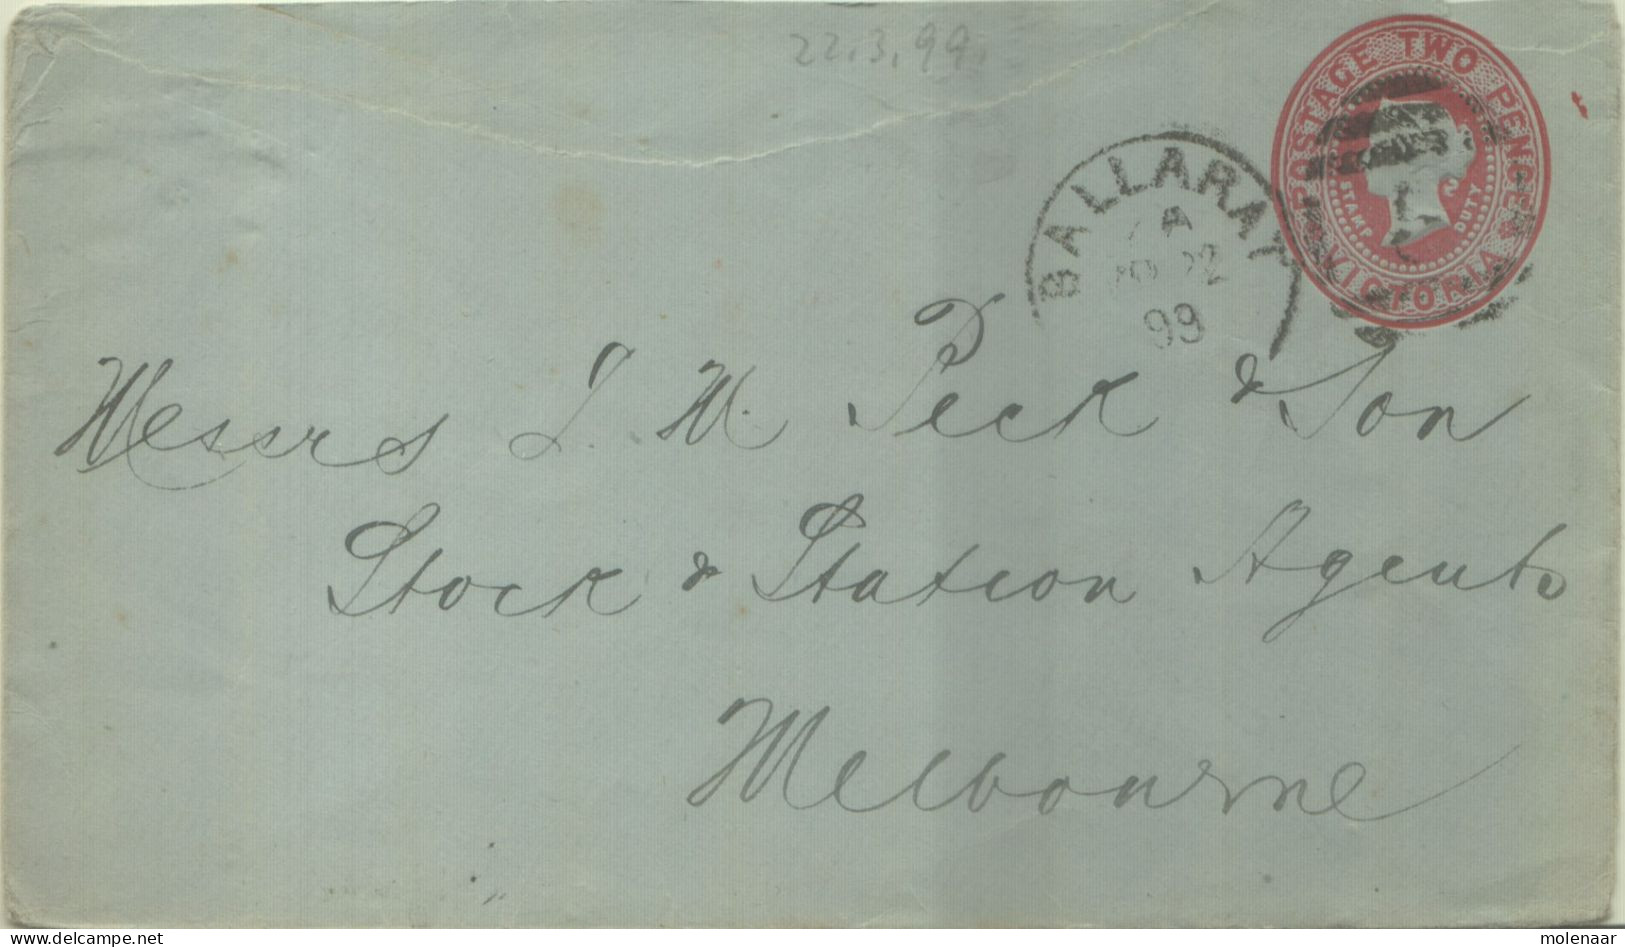 22.3.99
POSTAGE TWO PENCE
STAMP DUTY
VICTORIA
BALLARAT
A
22
99
Messrs J. W. Peck & Son
Stock & Station Agents
Melbourne
www.delcampe.net
molenaar